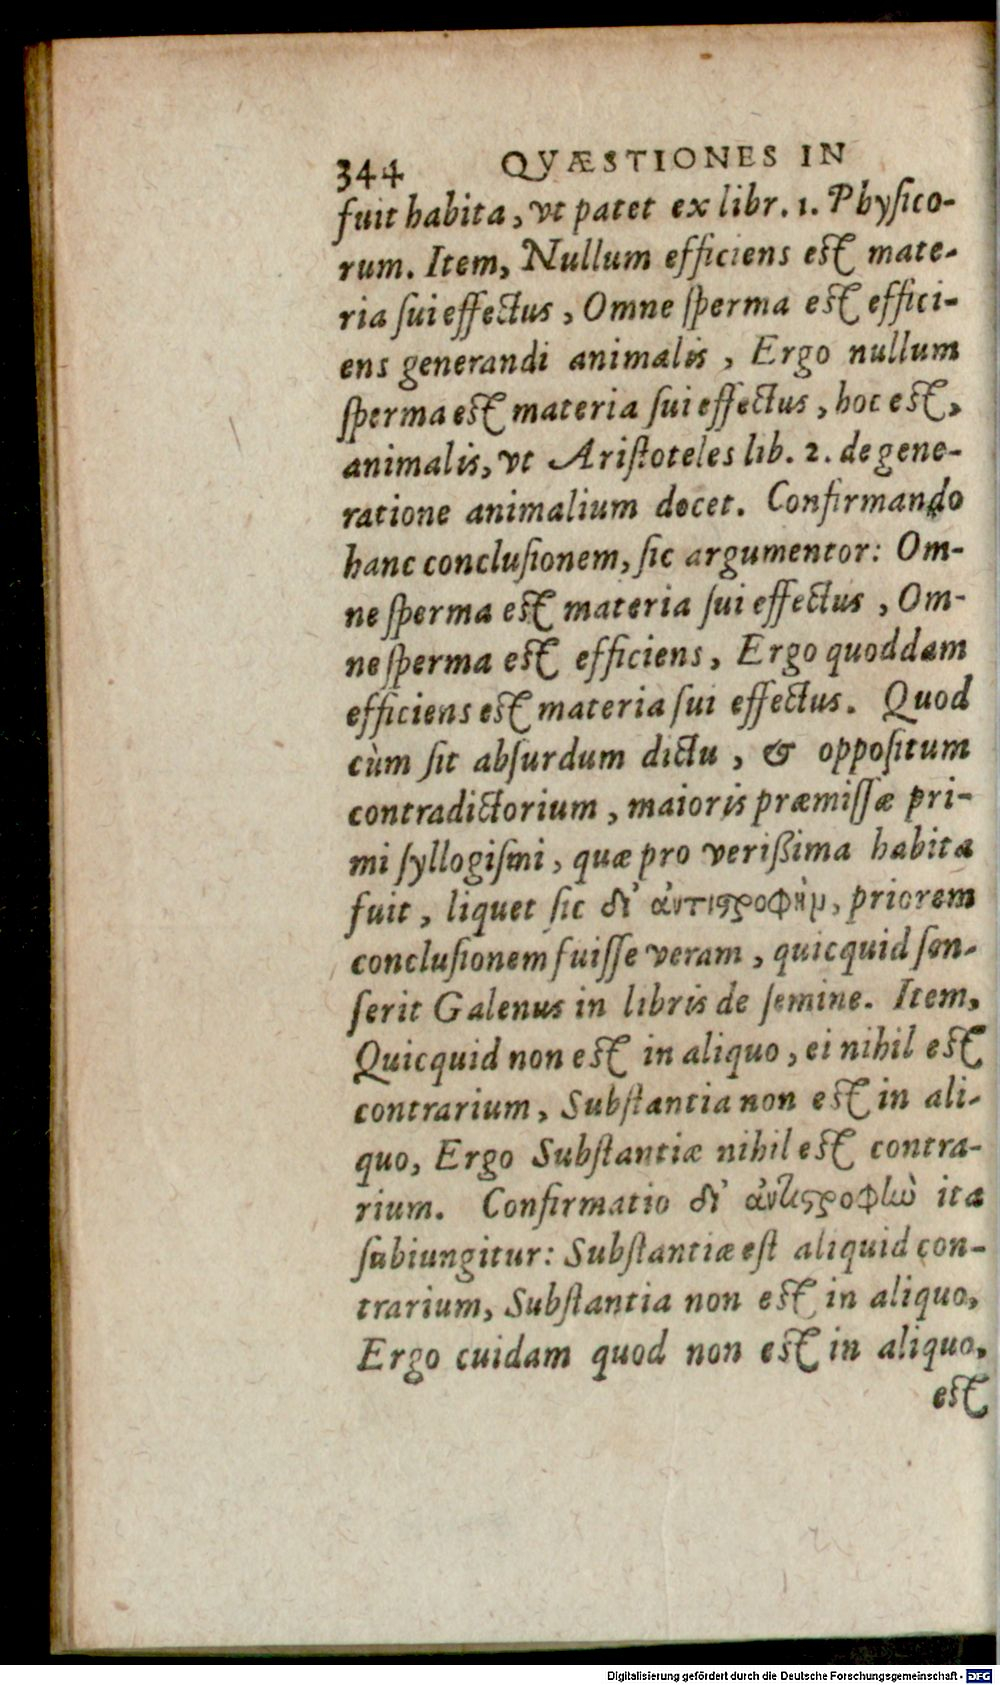 344 QVÆSTIONES IN
fuit habita, vt patet ex libr. 1. Physico-
rum. Item, Nullum efficiens est mate-
ria sui effectus, Omne sperma est effici-
ens generandi animalis, Ergo nullum
sperma est materia sui effectus, hoc est,
animalis, vt Aristoteles lib. 2. de gene-
ratione animalium docet. Confirmando
hanc conclusionem, sic argumentor: Om-
ne sperma est materia sui effectus, Om-
ne sperma est efficiens, Ergo quoddam
efficiens est materia sui effectus. Quod
cùm sit absurdum dictu, & oppositum
contradictorium, maioris præmissæ pri-
mi syllogismi, quæ pro verißima habita
fuit, liquet sic δι' ἀντιστροφὴμ, priorem
conclusionem fuisse veram, quicquid sen-
serit Galenus in libris de semine. Item,
Quicquid non est in aliquo, ei nihil est
contrarium, Substantia non est in ali-
quo, Ergo Substantiæ nihil est contra-
rium. Confirmatio δι' ἀντιστροφὴν ita
subiungitur: Substantiæ est aliquid con-
trarium, Substantia non est in aliquo,
Ergo cuidam quod non est in aliquo,
est
Digitalisierung gefördert durch die Deutsche Forschungsgemeinschaft - DFG